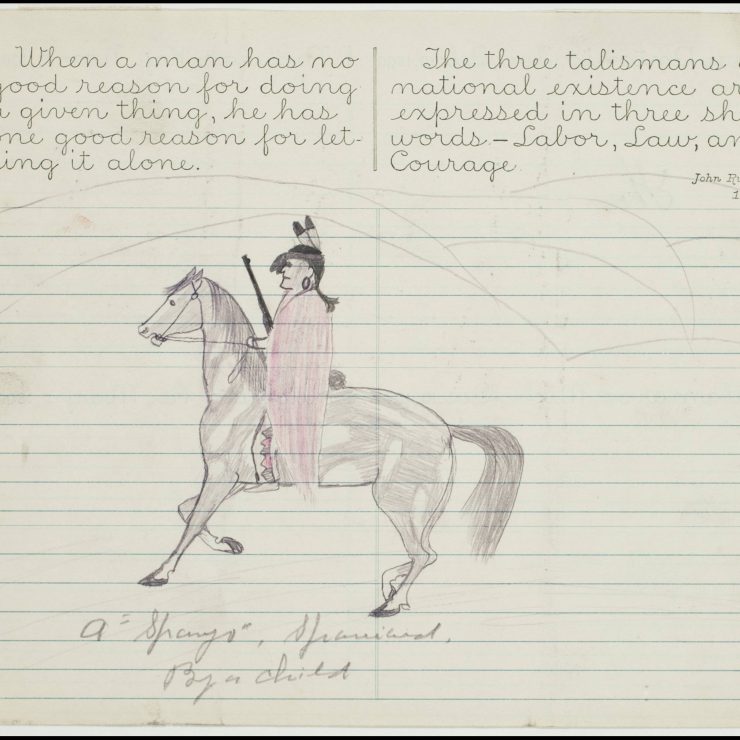 When a man has no
good reason for doing
a given thing, he has
one good reason for let-
ting it alone.
The three talismans
national existence ar
expressed in three sh
words.—Labor, Law, an
Courage
John Ru
1
A "Spanyo", Spaniard.
By a child